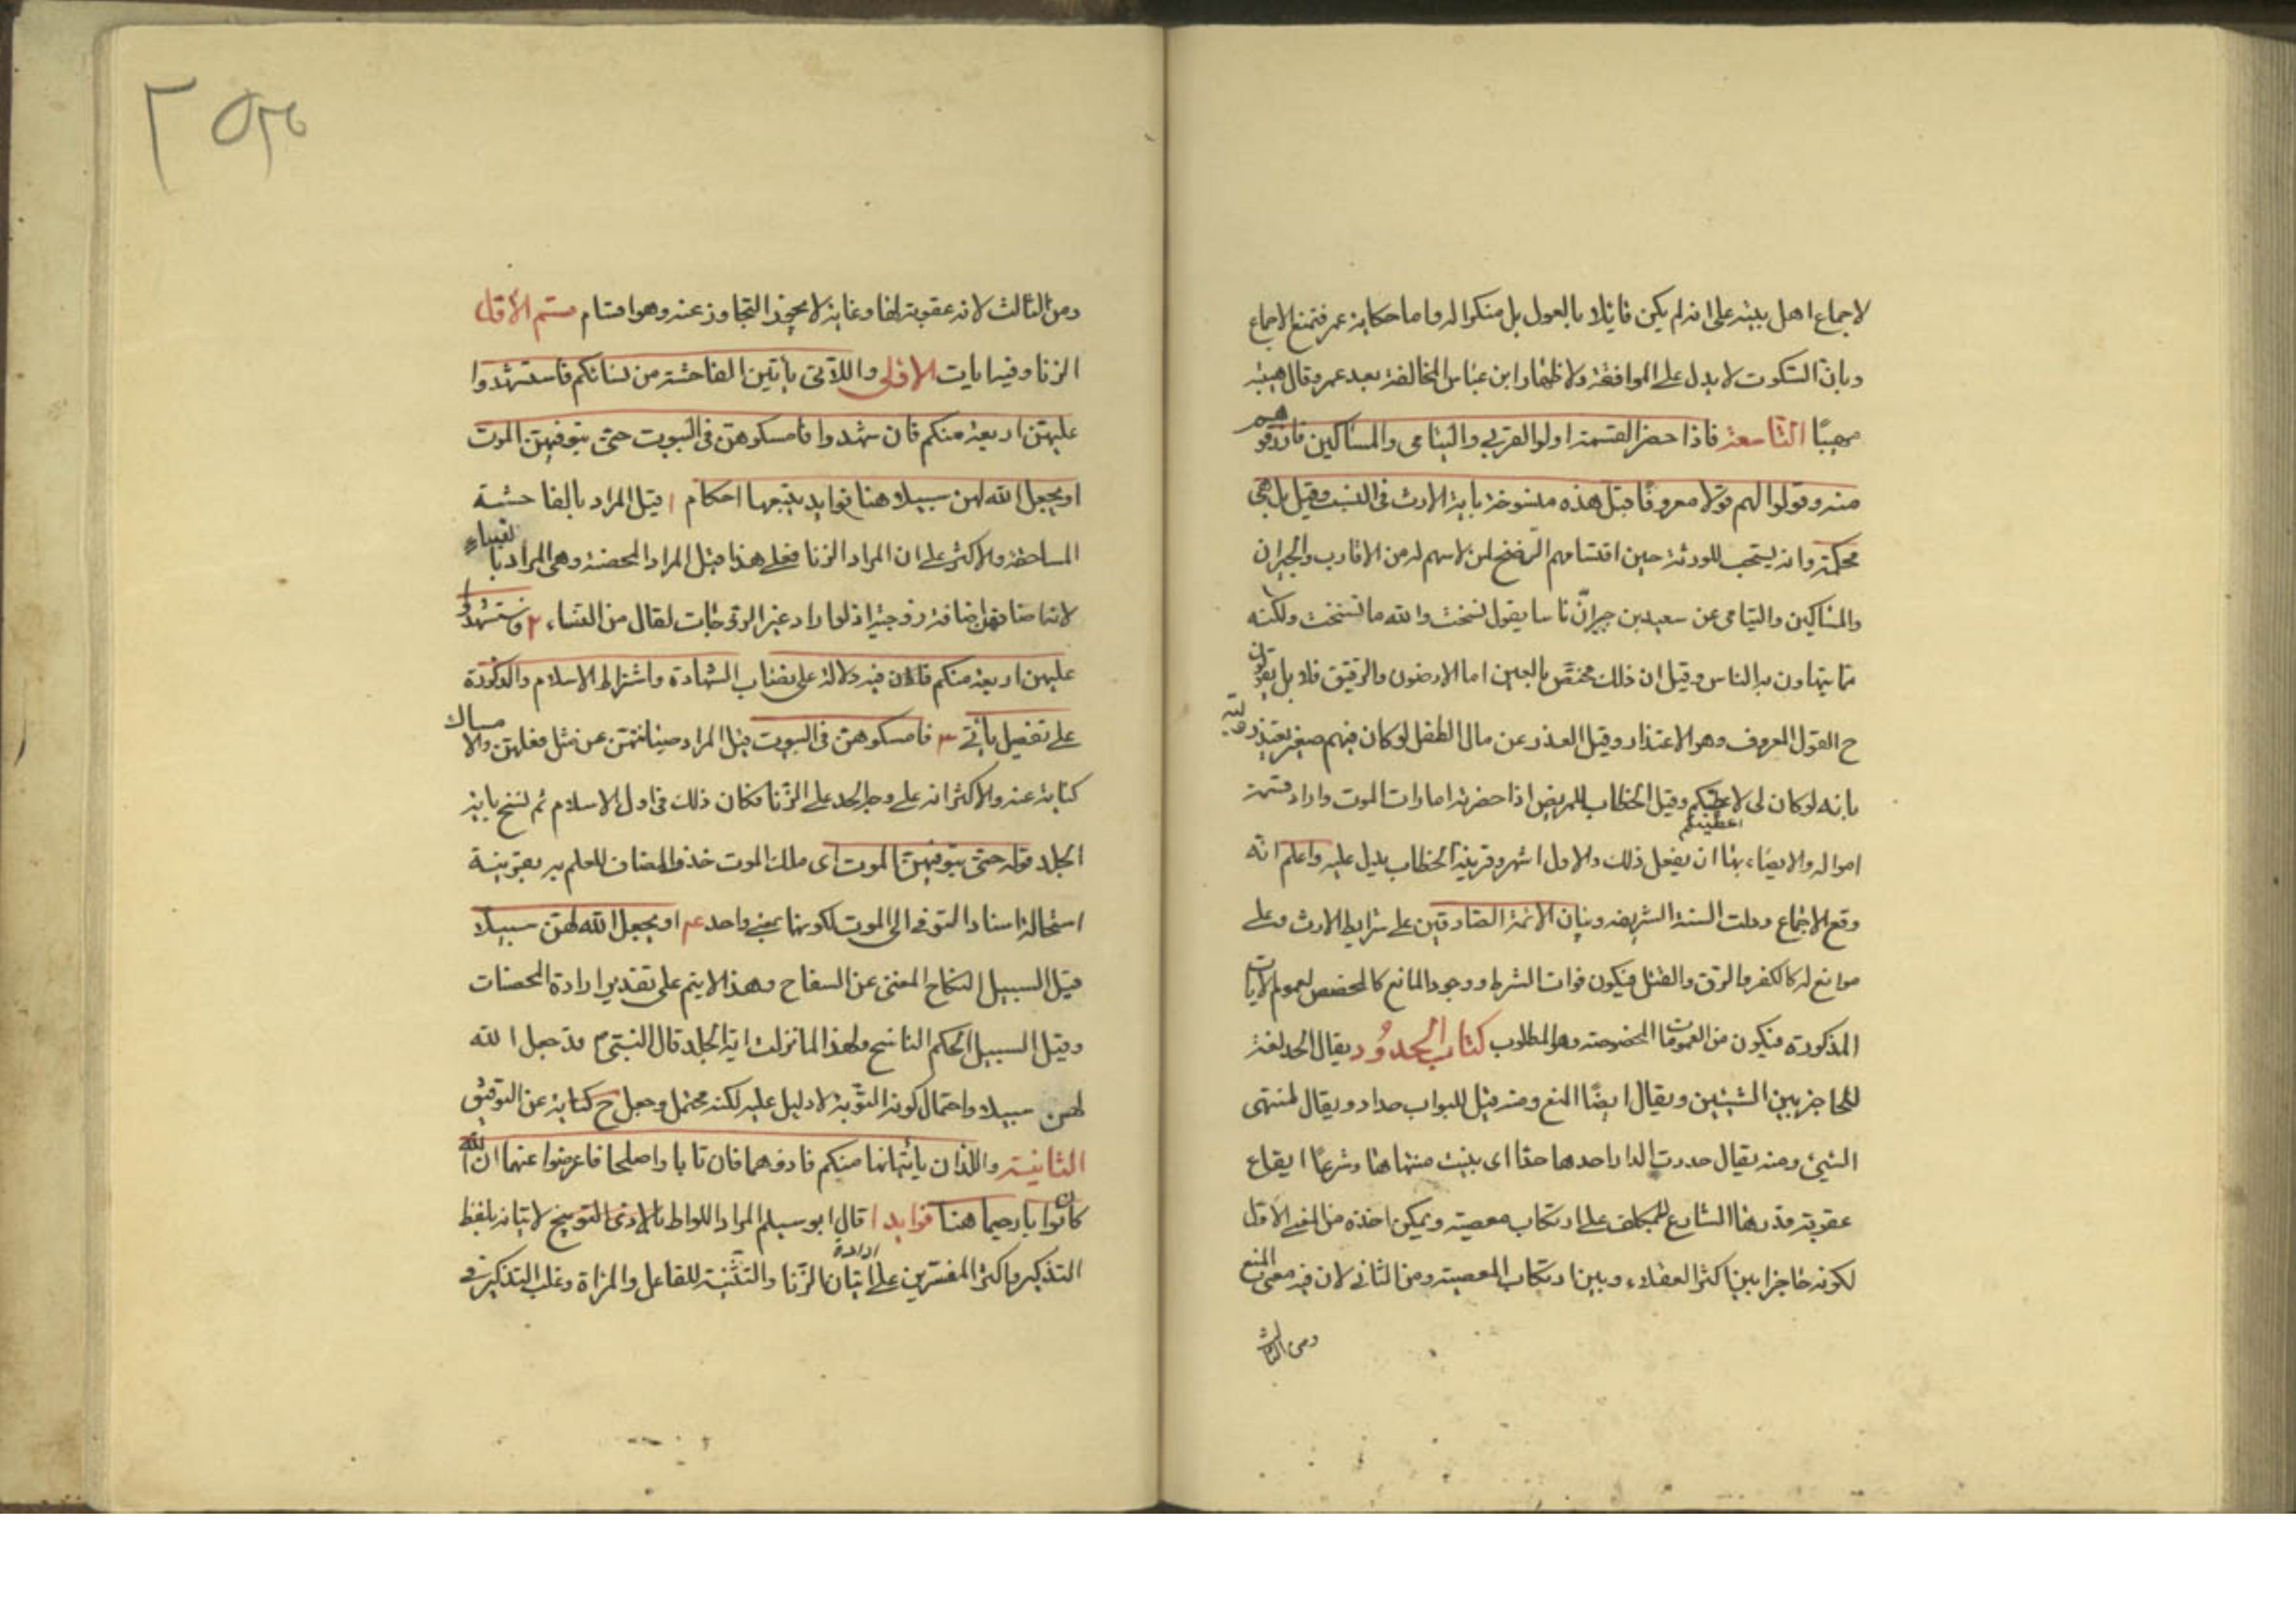 لاجماع اهل بيته على انه لم يكن قايلا بالعول بل منكرا له واما حكاية عمر فتمنع الاجماع
وبان السكوت لا يدل على الموافقة ولاظهار ابن عباس المخالفة بعد عمر وقال هبته
مهيبًا التاسعة فاذا حضر القسمة اولوا القربى واليتامى والمساكين فارزقوهم
منه وقولوا لهم قولا معروفًا قيل هذه منسوخة باية الارث في النسب وقيل بل هي
محكمة وانه يستحب للورثة حين اقتسامهم الرضخ لمن لا سهم له من الاقارب والجيران
والمساكين واليتامى عن سعيد بن جبير انّ ناسا يقول نسخت والله ما نسخت ولكنه
مما يتهاون به الناس وقيل ان ذلك مختصّ بالعين اما الارضون والرقيق فلا بل يقولون
ح القول المعروف وهو الاعتذار وقيل العذر عن مال الطفل لو كان فيهم صغير يعتذر وليّه
بانه لو كان لى لاعطيتكم وقيل الخطاب للمريض اذا حضرته امارات الموت واراد قسمة
امواله والايصاء بها ان يفعل ذلك والاول اشهر وقرينة الخطاب يدل عليه واعلم انّه
وقع الاجماع ودلت السنة الشريفة وبيان الائمة الصادقين على شرايط الارث وعلى
موانع له كالكفر والرق والقتل فيكون فوات الشرط ووجود المانع كالمخصص لعموم الايات
المذكورة فيكون من العمومات المخصوصة وهو المطلوب كتاب الحدُود يقال الحد لغة
للحاجز بين الشيئين ويقال ايضًا المنع ومنه قيل للبواب حداد ويقال لمنتهى
الشيئ ومنه يقال حددت الدار احدها حدا اى بينت منتهاها وشرعًا ايقاع
عقوبة قدرها الشارع للمكلف على ارتكاب معصية ويمكن اخذه من المعنى الاول
لكونه حاجزا بين اكثر العقلاء وبين ارتكاب المعصية ومن الثانى لان فيه معنى المنع
ومن الثالث
ومن الثالث لانه عقوبة لها وغاية لا يجوز التجاوز عنه وهو اقسام قسم الاول
الزنا وفيه ايات الاولى واللاتى ياتين الفاحشة من نسائكم فاستشهدوا
عليهنّ اربعة منكم فان شهدوا فامسكوهنّ فى البيوت حتى يتوفيهنّ الموت
او يجعل الله لهن سبيلا هنا فوايد يتبعها احكام ا قيل المراد بالفاحشة
المساحقة والاكثر على ان المراد الزنا فعلى هذا قيل المراد المحصنة وهى المراد بالنساء
لانه اضافهنّ اضافة زوجية اذ لو اراد غير الزوجات لقال من النساء ٢ فاستشهدوا
عليهن اربعة منكم فان فيه دلالة على نصاب الشهادة واشتراط الاسلام والذكورة
على تفصيل يأتي ٣ فامسكوهنّ فى البيوت قيل المراد صيانتهنّ عن مثل فعلهنّ والامساك
كناية عنه والاكثر انه على وجه الحد على الزّنا فكان ذلك فى اول الاسلام ثم نسخ باية
الجلد قوله حتى يتوفيهنّ الموت اى ملك الموت حذف المضاف للعلم به بقرينة
استحالة اسناد التوفى الى الموت لكونهما بمعنى واحد ٤ او يجعل الله لهنّ سبيلًا
قيل السبيل النكاح المغنى عن السفاح وهذا لا يتم على تقدير ارادة المحصنات
وقيل السبيل الحكم الناسخ ولهذا لما نزلت اية الجلد قال النبيّ م قد جعل الله
لهن سبيلا واحتمال كونه التوبة لا دليل عليه لكنه محتمل وجعل ح كناية عن التوفيق
الثانية واللذان يأتيانها منكم فاذوهما فان تابا واصلحا فاعرضوا عنهما ان الله
كان توابا رحيما هنا فوايد ا قال ابو مسلم المراد اللواط بالاذى التوبيخ لاتيانه بلفظ
التذكير واكثر المفسرين على ارادة اتيان الزّنا والتثنية للفاعل والمراة وغلب التذكير فى